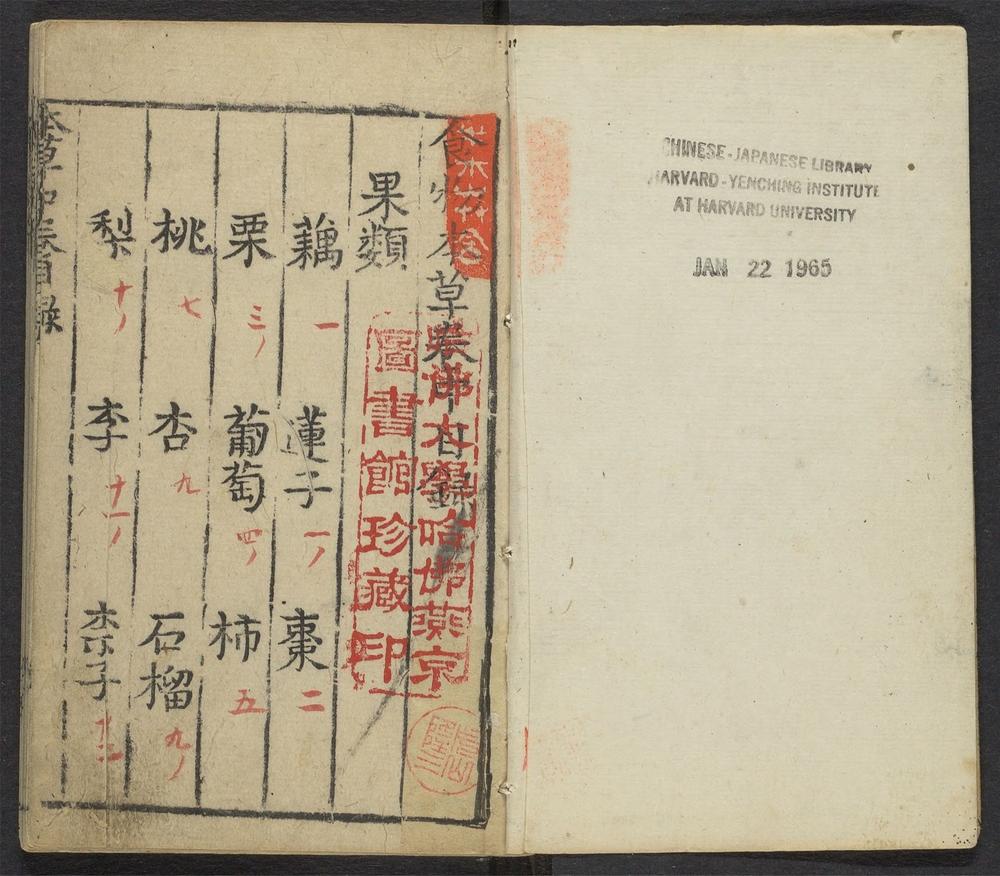 CHINESE-JAPANESE LIBRARY
HARVARD-YENCHING INSTITUTE
AT HARVARD UNIVERSITY
JAN 22 1965
食物本草卷中目錄
哈佛大學哈佛燕京
圖書館珍藏印
果類
藕 一 蓮子 一 棗 二
栗 三 葡萄 四 柿 五
桃 七 杏 九 石榴 九
梨 十 李 十一 柰子
本草中卷目錄